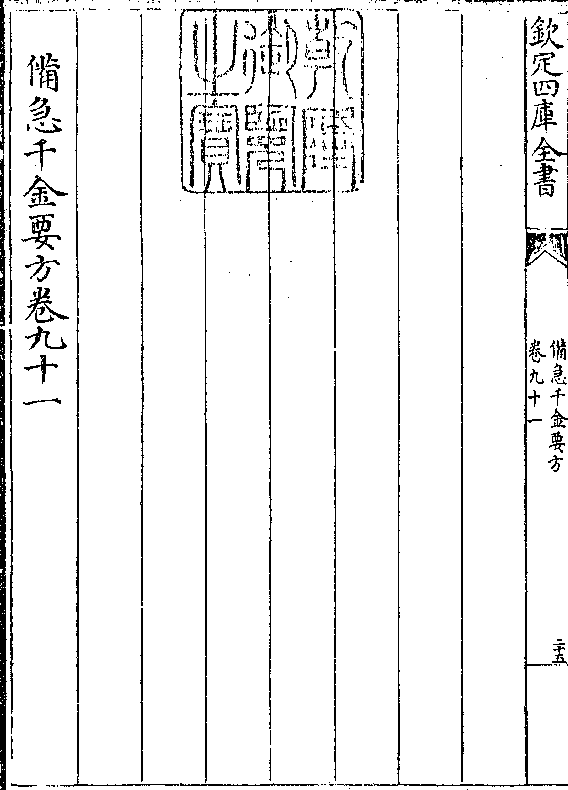 欽定四庫全書
備急千金要方
卷九十一
二十五
乾隆御覽之寶
備急千金要方卷九十一